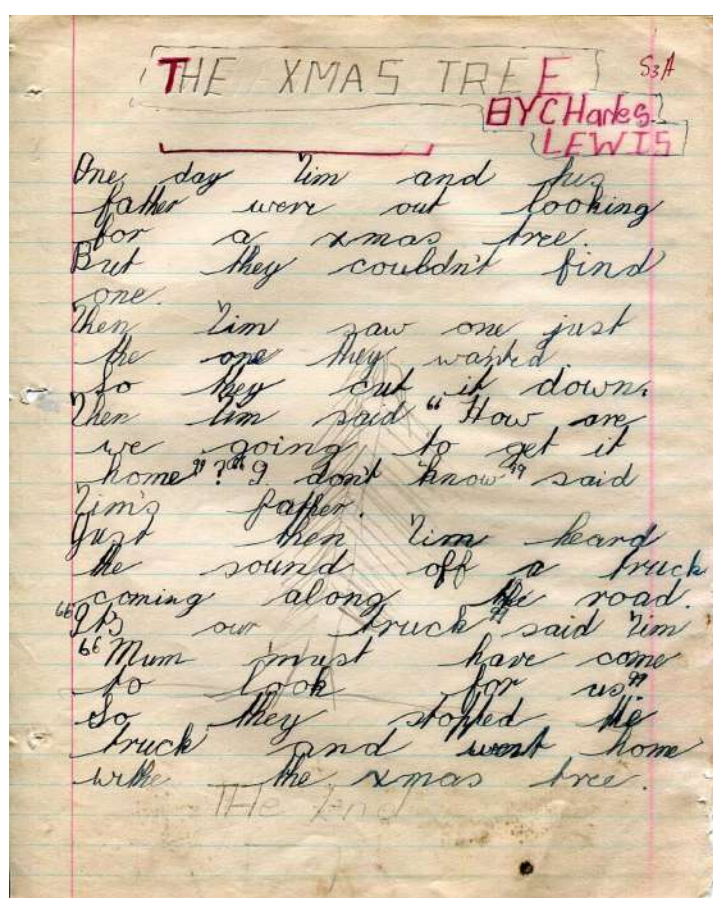 THE XMAS TREE
S3A
BY CHarles
LEWIS
One day Tim and his
father were out looking
for a xmas tree.
But they couldn't find
one.
Then Tim saw one just
the one they wanted.
So they cut it down.
Then Tim said "How are
we going to get it
home"? "I don't know" said
Tim's father.
Just then Tim heard
the sound off a truck
coming along the road.
"It's our truck" said Tim
"Mum must have come
to look for us"
So they stopped the
truck and went home
withe the xmas tree.
THe End